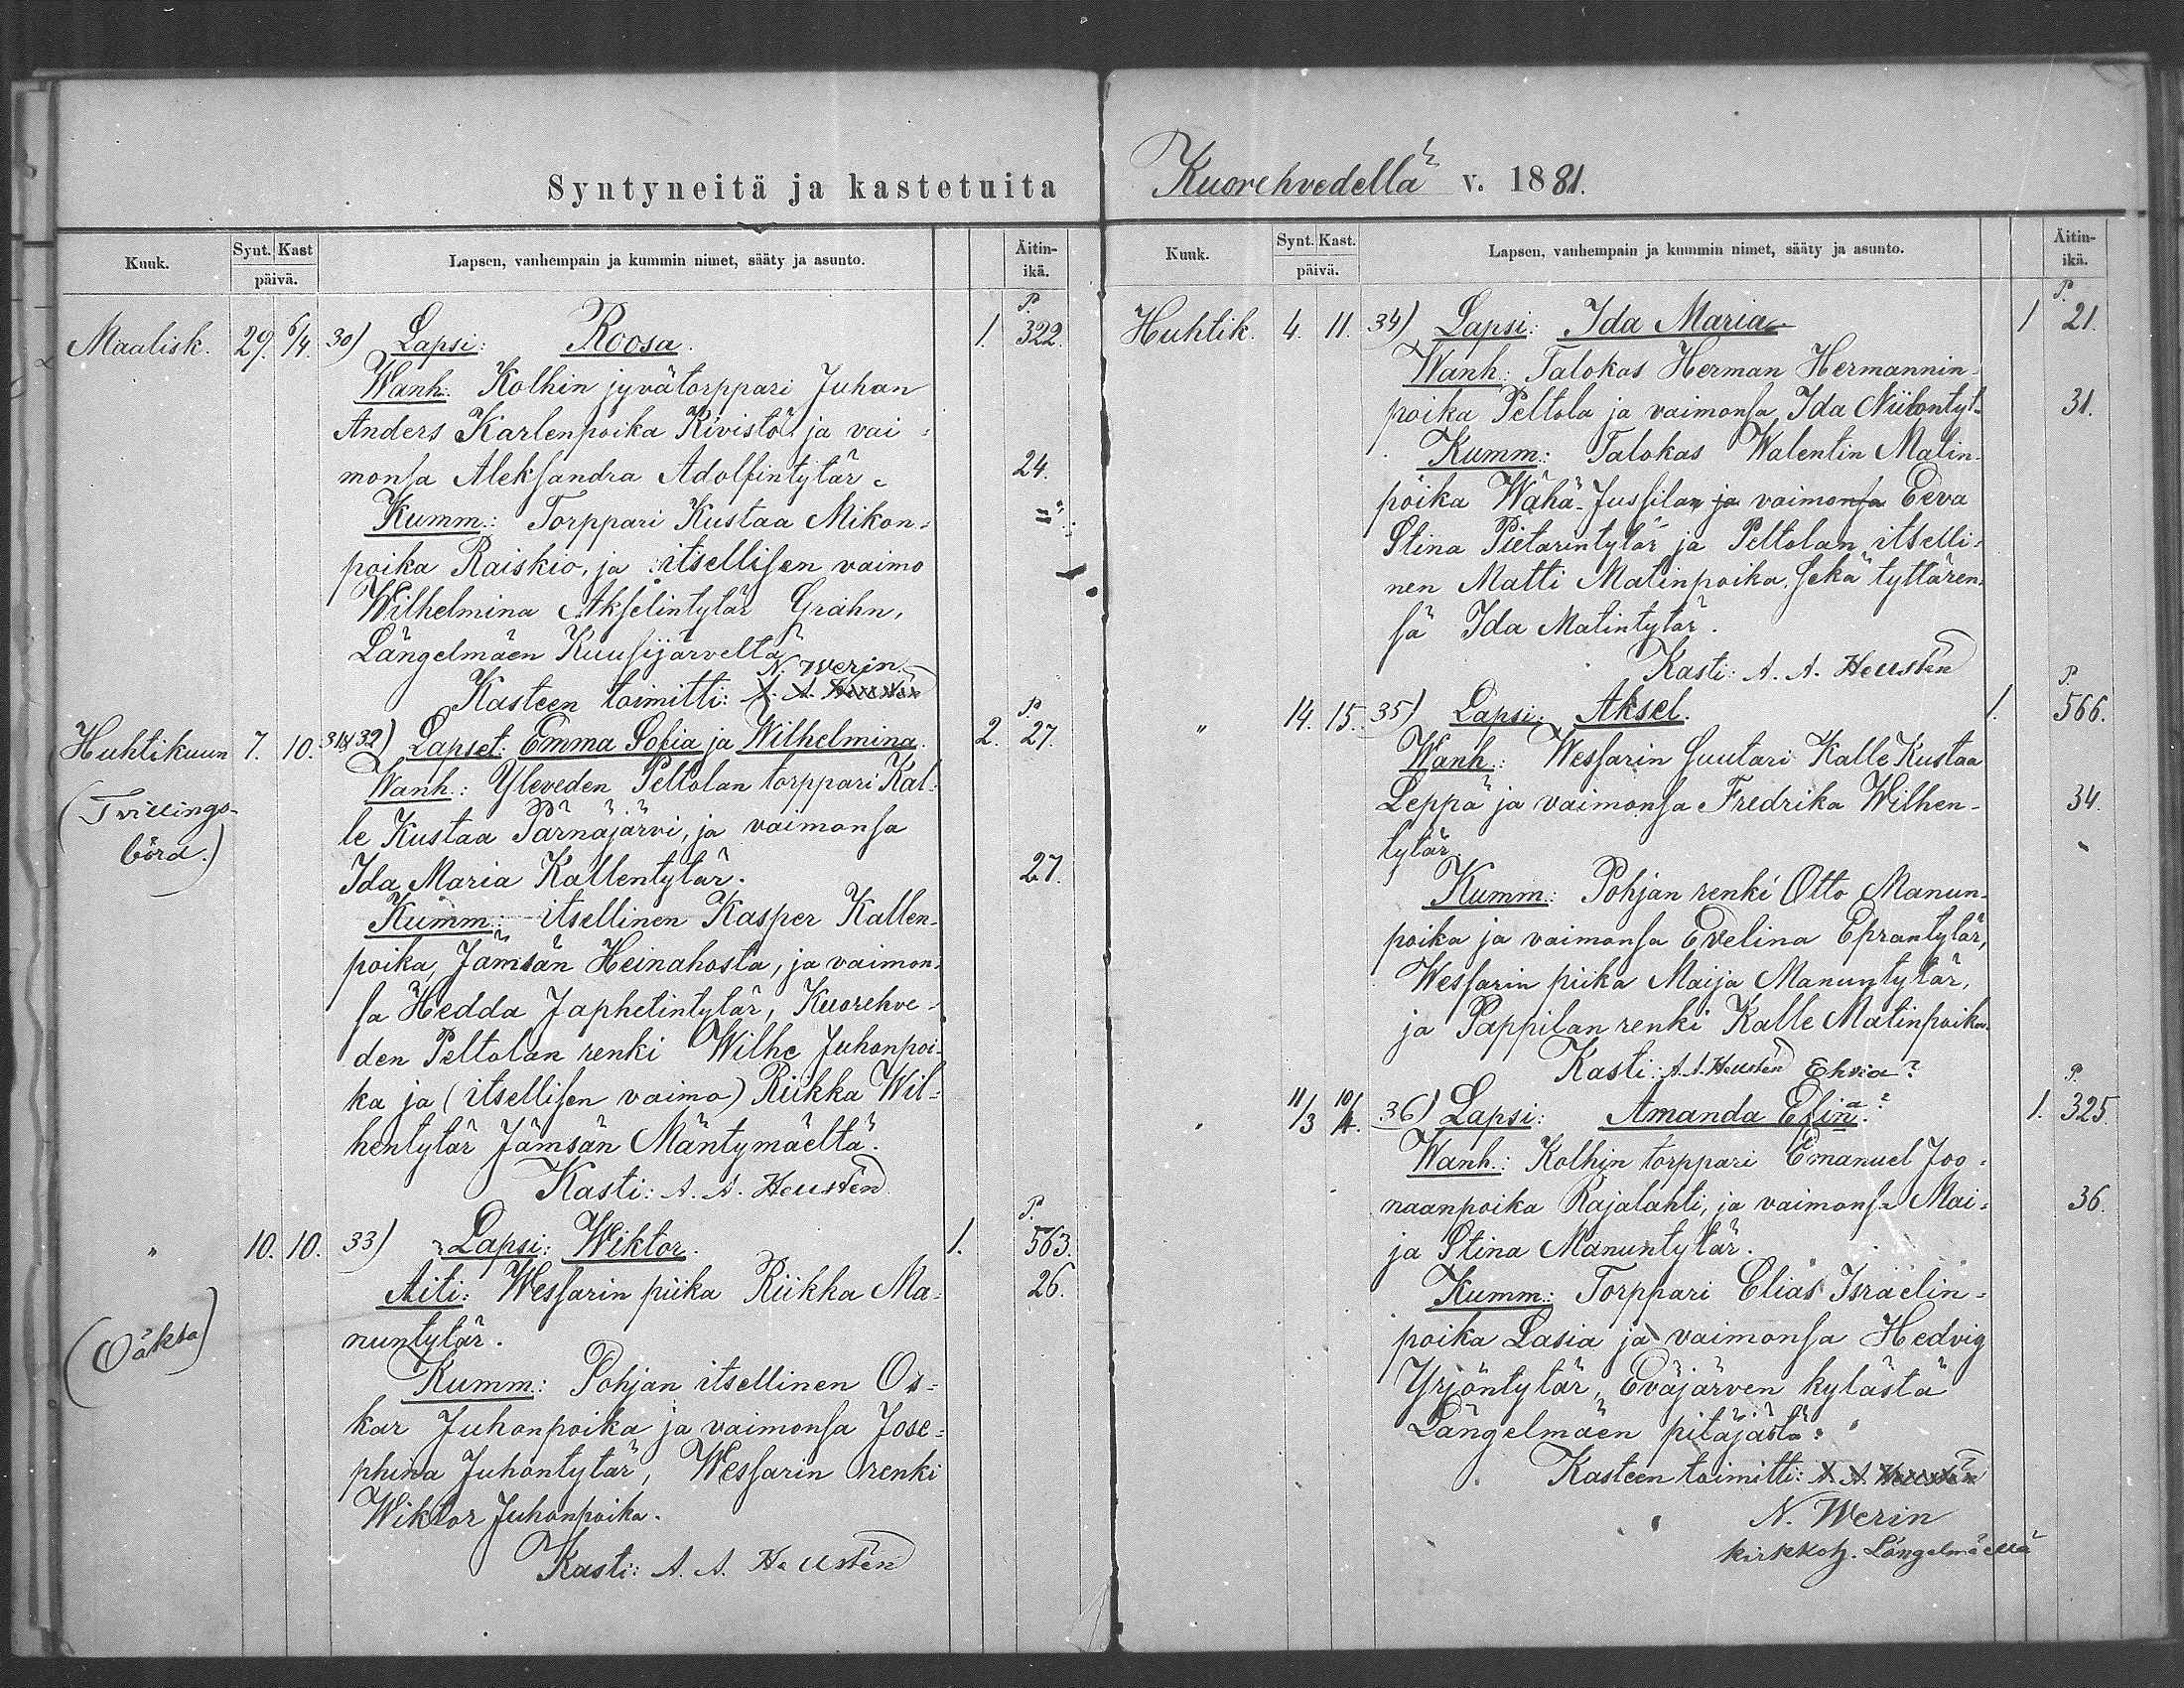 Syntyneitä ja kastetuita
Kuuk. Synt. Kast päivä. Lapsen, vanhempain ja kummin nimet, sääty ja asunto. Äitin-ikä.
P.
Maalisk. 29. 6/4. 30) Lapsi: Roosa. 1. 322.
Wanh: Kolhin jyvätorppari Juhan
Anders Karlenpoika Kivistö ja vai=
monsa Aleksandra Adolfintytär. 24.
Kumm.: Torppari Kustaa Mikon=
poika Raiskio, ja itsellisen vaimo
Wilhelmina Akselintytär Grahn,
Längelmäen Kuusijärveltä
N. Werin.
Kasteen toimitti: A. A. Heusten
P.
Huhtikuun 7. 10. 31&32) Lapset: Emma Sofia ja Wilhelmina. 2. 27.
(Tvillings-
börd.)
Wanh.: Yleveden Peltolan torppari Kal=
le Kustaa Pärnäjärvi, ja vaimonsa
Ida Maria Kallentytär. 27.
Kumm.: itsellinen Kasper Kallen=
poika, Jämsän Heinahosta, ja vaimon=
sa Hedda Japhetintytär, Kuorehve=
den Peltolan renki Wilhe Juhonpoi=
ka ja (itsellisen vaimo) Riikka Wil=
hentytär Jämsän Mäntymäeltä.
Kasti: A. A. Heusten
P.
" 10. 10. 33) Lapsi: Wiktor. 1. 563.
Äiti: Wessarin piika Riikka Ma= 26.
(Oäkta)
nuntytär.
Kumm: Pohjan itsellinen Os=
kar Juhonpoika ja vaimonsa Jose=
phina Juhontytär, Wessarin renki
Wiktor Juhonpoika.
Kasti: A. A. Heusten
Kuorehvedellä v. 1881.
Kuuk. Synt. Kast. päivä. Lapsen, vanhempain ja kummin nimet, sääty ja asunto. Äitin-ikä.
P.
Huhtik. 4. 11. 34) Lapsi: Ida Maria. 1 21.
Wanh.: Talokas Herman Hermannin=
poika Peltola ja vaimonsa Ida Niilontyt= 31.
Kumm: Talokas Walentin Matin=
poika Wähä-Jussilan ja vaimonsa Eeva
Stina Pietarintytär ja Peltolan itselli=
nen Matti Matinpoika, sekä tyttären=
sä Ida Matintytär.
Kasti: A. A. Heusten
P.
" 14. 15. 35) Lapsi: Aksel. 1. 566.
Wanh.: Wessarin suutari Kalle Kustaa
Leppä ja vaimonsa Fredrika Wilhen- 34.
tytär.
Kumm: Pohjan renki Otto Manun=
poika ja vaimonsa Evelina Eprantytär,
Wessarin piika Maija Manuntytär,
ja Pappilan renki Kalle Matinpoika.
Kasti: A. A. Heusten
Elvia?
P.
" 11/3 10/4. 36) Lapsi: Amanda Elina? 1. 325.
Wanh.: Kolhin torppari Emanuel Joo=
naanpoika Rajalahti, ja vaimonsa Mai= 36.
ja Stina Manuntytär.
Kumm: Torppari Elias Israelin=
poika Lasia ja vaimonsa Hedvig
Yrjöntytär, Eväjärven kylästä
Längelmäen pitäjästä.
Kasteen toimitti: A. A. Heusten
N. Werin
kirkkoh. Längelmäellä